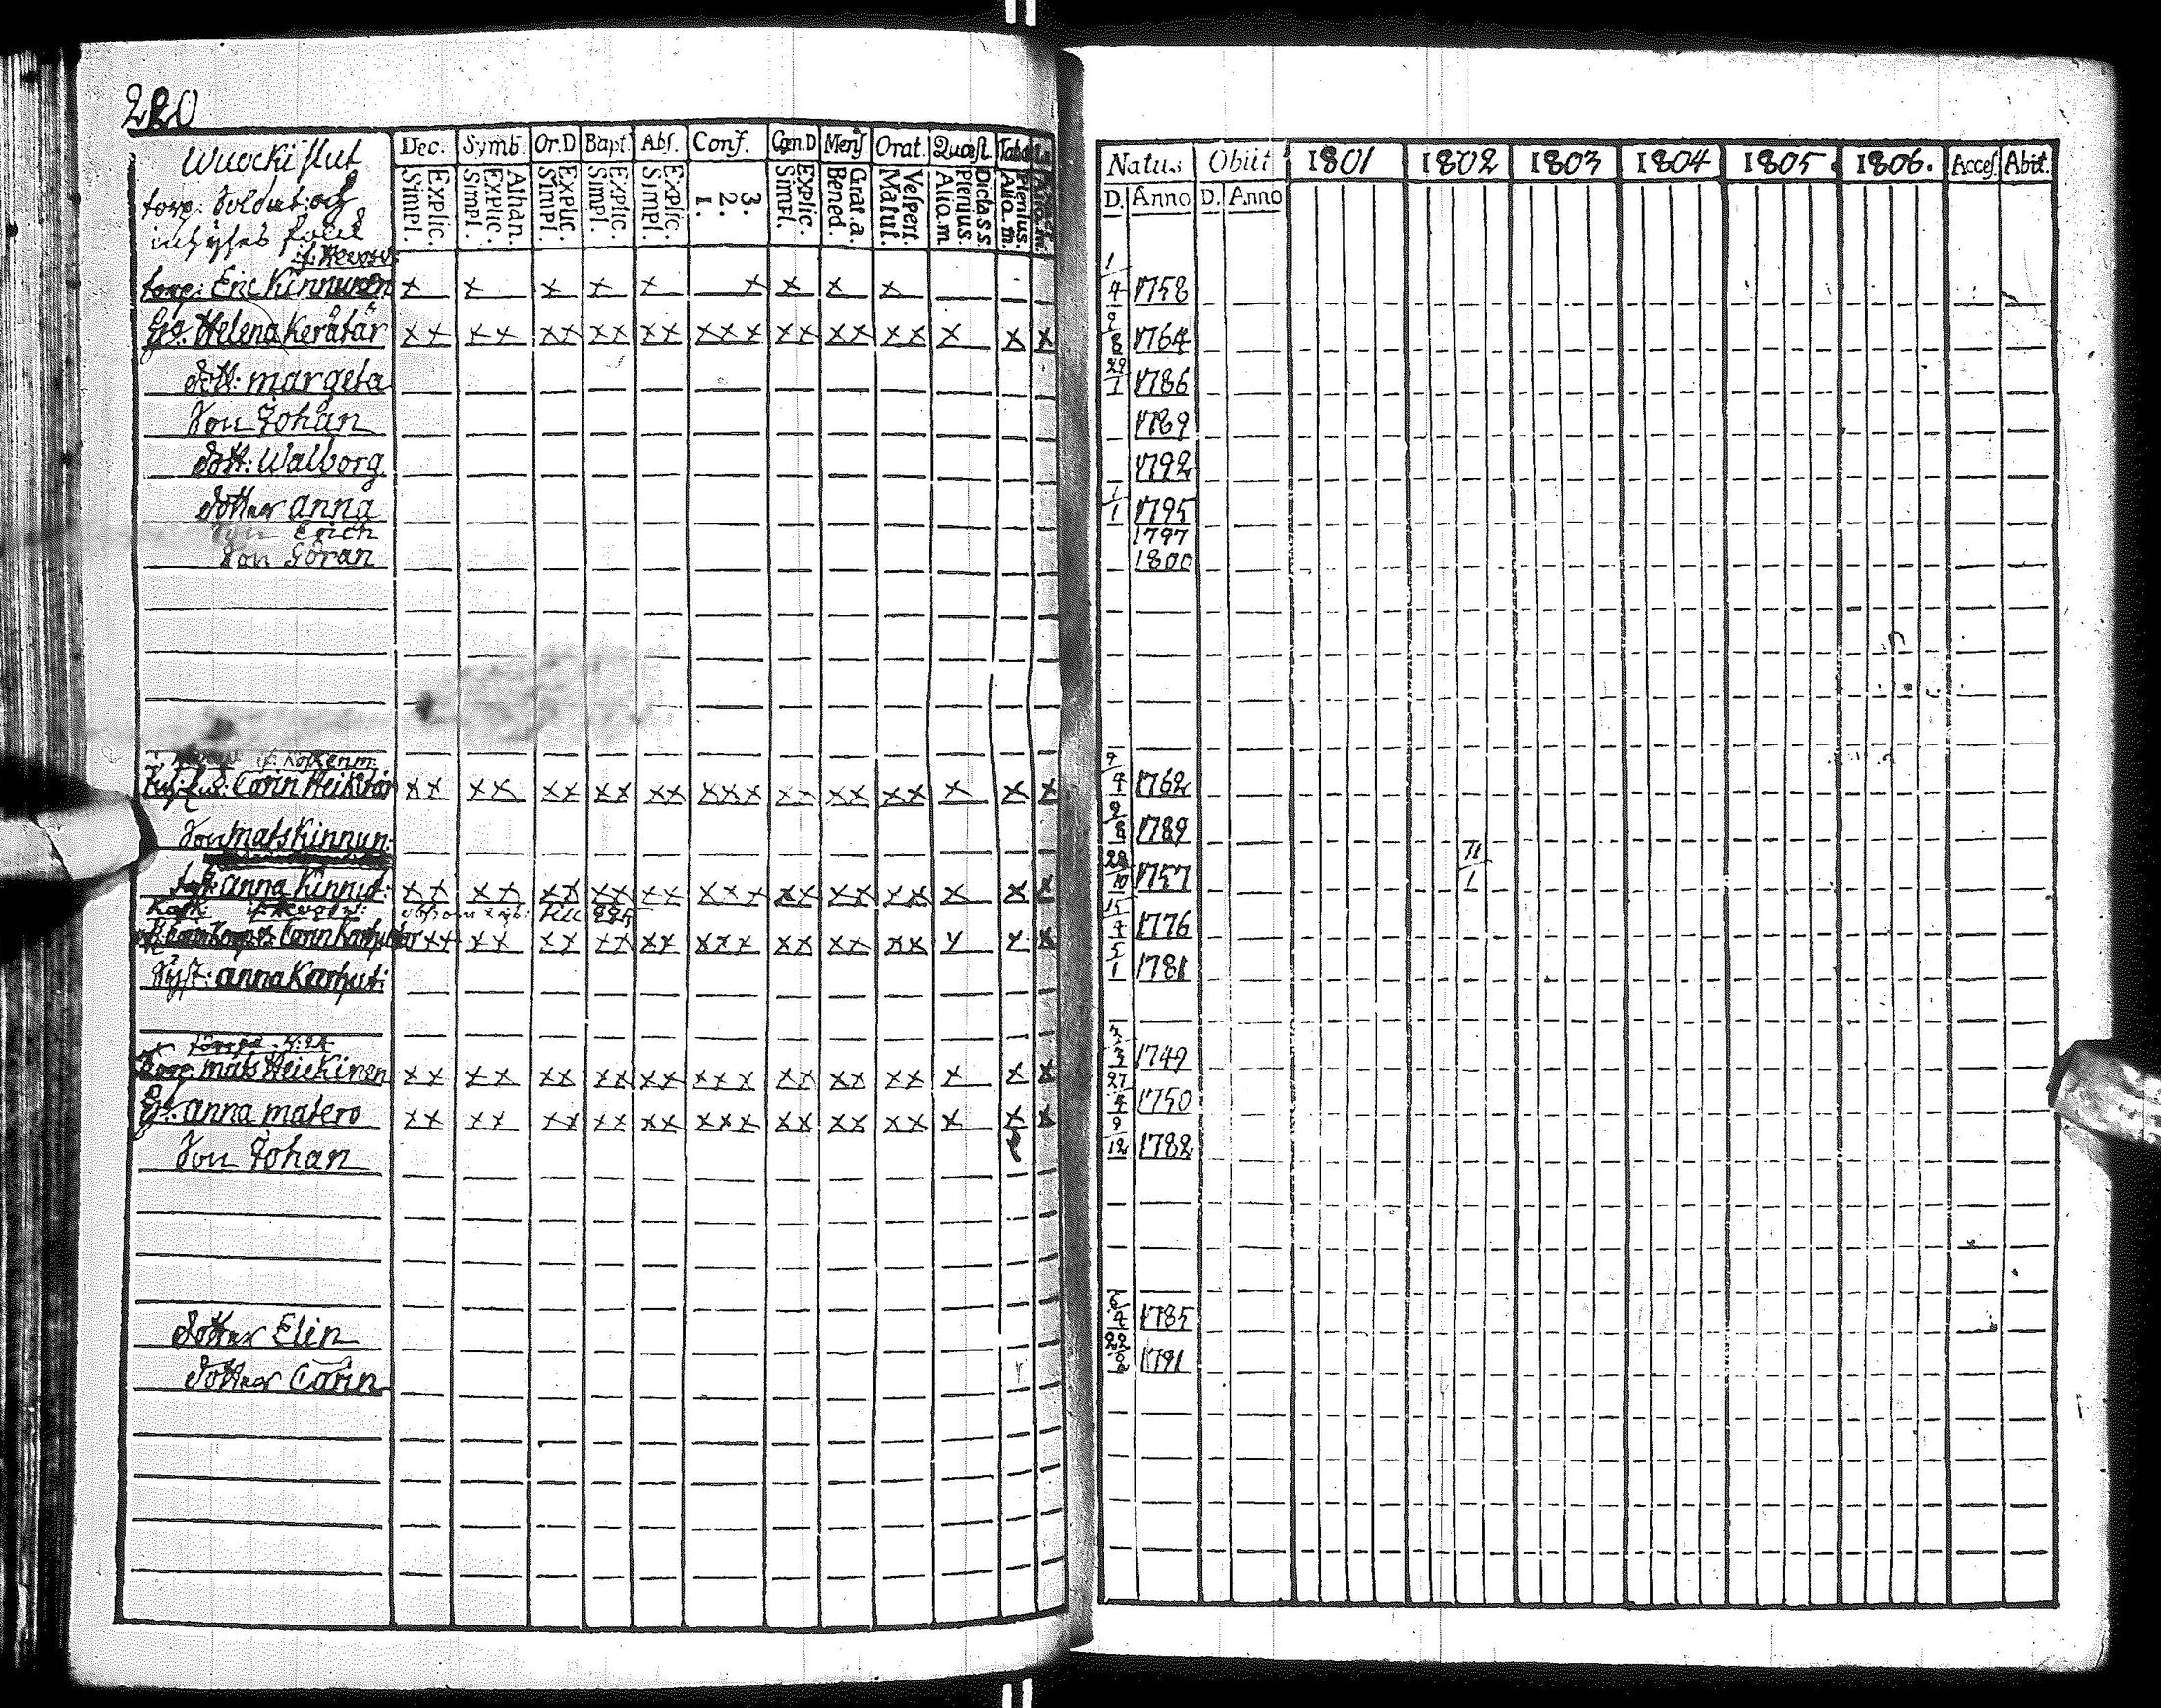 220
Dec. Symb. Or.D Bapt. Abs. Conf. Cœn.D Mens Orat. Quæst. Tab
Simpl. Explic. Simpl. Explic. Athan. Simpl. Explic. Simpl. Explic. Simpl. Explic. 1. 2. 3. Simpl. Explic. Bened. Grat.a. Matut. Vespert. Alio.m Plenius. Dicta s.s. Alio.m. Plenius.
Natus Obiit 1801 1802 1803 1804 1805 1806. Acces. Abit.
D. Anno D. Anno
torp: Soldat: och
torp: Eric Kinnunen x x x x x x x x x 1/4 1758
Helena Kerätär xx xx xx xx xx xxx xx xx xx x x x 2/8 1764
dott: margeta 29/1 1786
Son Johan 1789
dott: Walborg 1792
dotter anna 1/1 1795
Son Erich 1797
Son Göran 1800
Carin Heikitär xx xx xx xx xx xxx xx xx xx x x x 1762
Son mats Kinnun: 1789
anna Kinnut: xx xx xx xx xx xxx xx xx xx x x x 1757 11/1
till 225
xx xx xx xx xx xxx xx xx xx x x x 15/4 1776
Syst: anna Karhut: 5/1 1781
Torp mats Heickinen xx xx xx xx xx xxx xx xx xx x x x 1749
anna matero xx xx xx xx xx xxx xx xx xx x x x 27/4 1750
Son Johan 9/12 1782
dotter Elin 6/4 1785
dotter Carin 1791